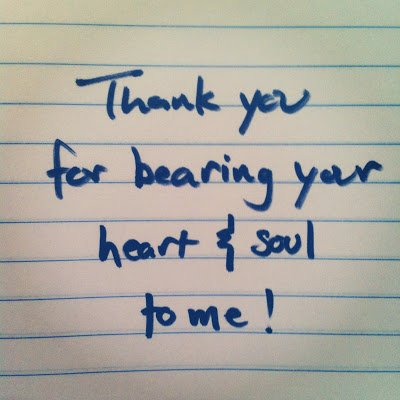 Thank you
for bearing your
heart & soul
to me!